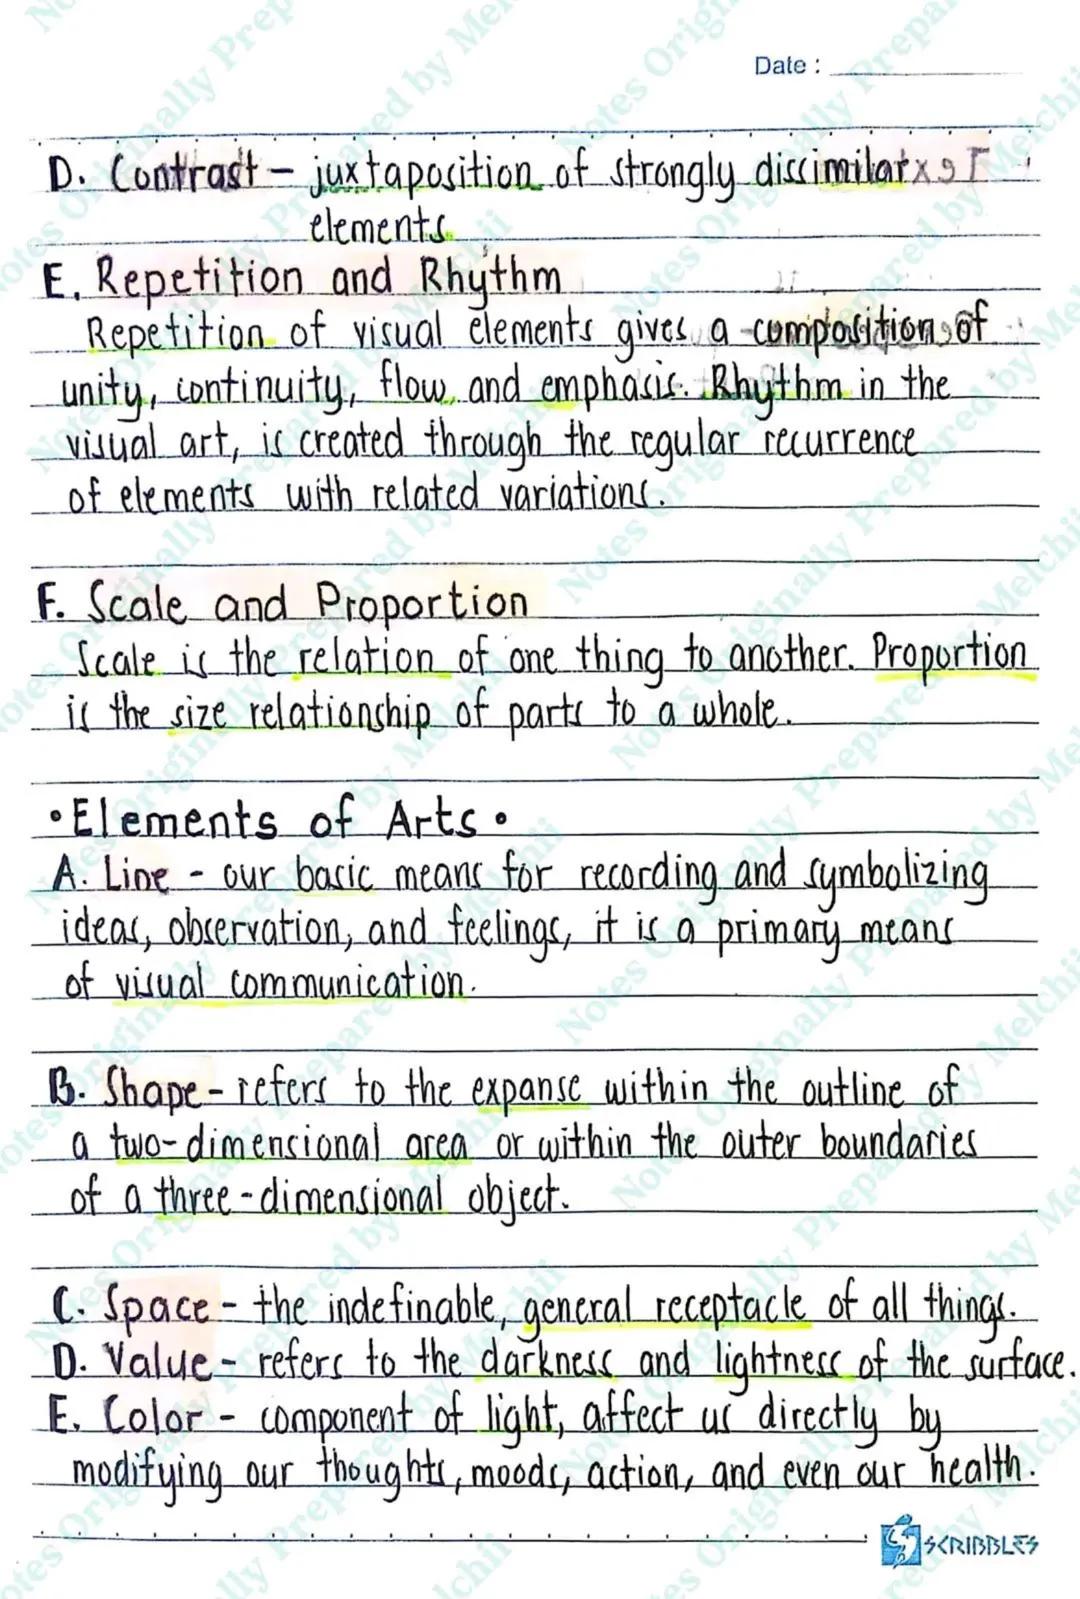 Date :
D. Contrast - juxtaposition of strongly dissimilar
elements.
E. Repetition and Rhythm
Repetition of visual elements gives a composition of
unity, continuity, flow, and emphasis. Rhythm in the
visual art, is created through the regular recurrence
of elements with related variations.
F. Scale and Proportion
Scale is the relation of one thing to another. Proportion
is the size relationship of parts to a whole.
•Elements of Arts•
A. Line - our basic means for recording and symbolizing
ideas, observation, and feelings, it is a primary means
of visual communication.
B. Shape - refers to the expanse within the outline of
a two-dimensional area or within the outer boundaries
of a three-dimensional object.
C. Space - the indefinable, general receptacle of all things.
D. Value - refers to the darkness and lightness of the surface.
E. Color - component of light, affect us directly by
modifying our thoughts, moods, action, and even our health.
SCRIBBLES
Notes Originally Prepared by Melchii